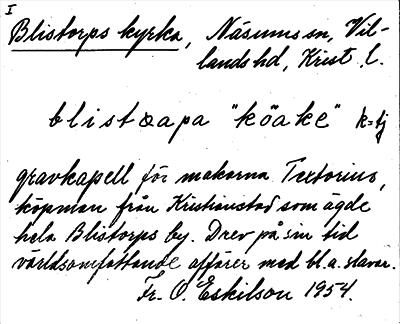 I
Blistorps kyrka, Näsums sn, Vil-
lands hd, Krist. l.
blistæapa "köake" k=tj
gravkapell för makarna Textorius,
köpman från Kristianstad som ägde
hela Blistorps by. Drev på sin tid
världsomfattande affärer med bl.a. slavar.
Fr. O. Eskilson 1954.